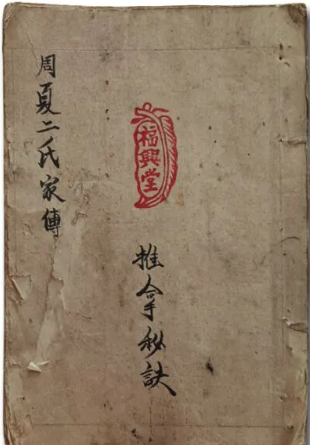 周夏二氏家傳
福興堂
推拿秘訣